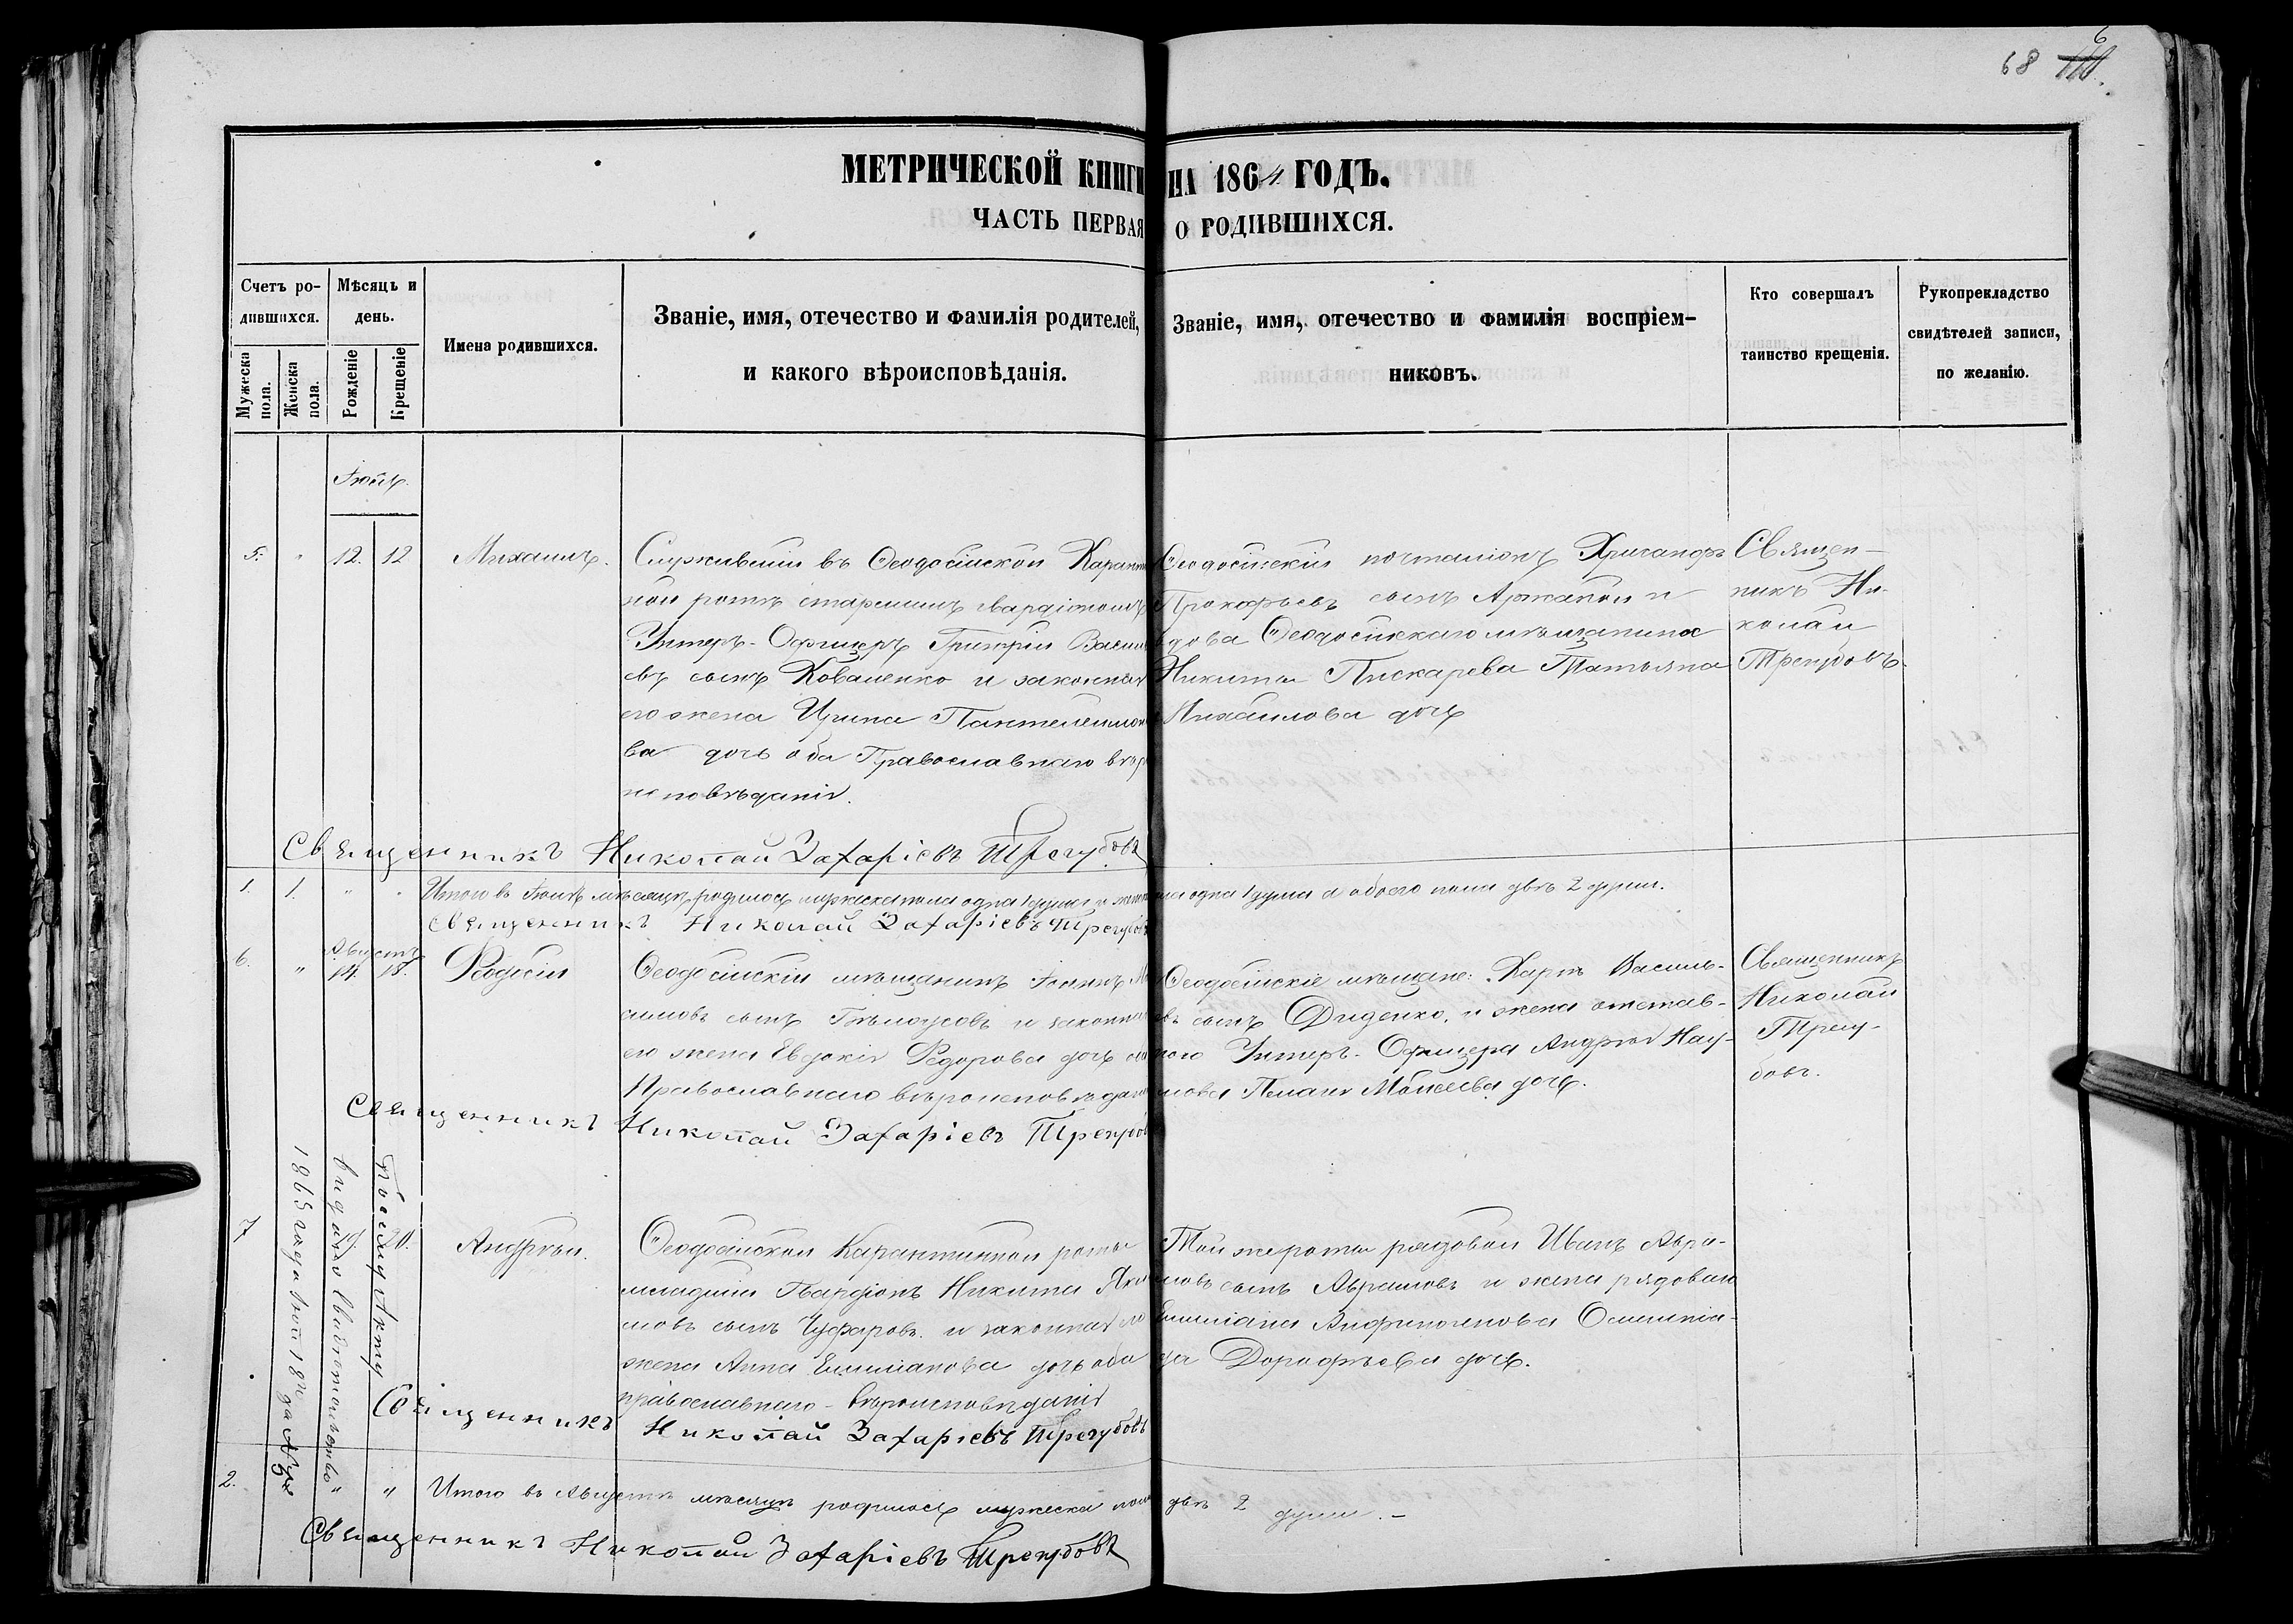 68
МЕТРИЧЕСКОЙ КНИГИ НА 1864 ГОДЪ.
ЧАСТЬ ПЕРВАЯ О РОДИВШИХСЯ.
Счетъ ро-
дившихся.
Мужеска пола.
Женска пола.
Мѣсяцъ и
день.
Рожденіе
Крещеніе
Имена родившихся.
Званіе, имя, отечество и фамилія родителей,
и какого вѣроисповѣданія.
Званіе, имя, отечество и фамилія воспріем-
никовъ.
Кто совершалъ
таинство крещенія.
Рукоприкладство
свидѣтелей записи,
по желанію.
5. " 12. 12 Михаилъ.
Служившій въ Ѳеодосійской Каран
ной ротѣ старшимъ гвардіономъ
Унтеръ-Офицеръ Григорій Васил
евъ сынъ Коваленко и законная
его жена Ирина Пантелеимон
ва дочь оба Православнаго вѣро
исповѣданія.
Ѳеодосійскій почталіонъ
Прокофьевъ сынъ и
вдова Ѳеодосійскаго мѣщанина
Никиты Пискарева Татьяна
Михайлова дочь
Священ-
никъ Ни-
колай
Трегубовъ.
Священникъ Николай Захаріевъ Трегубовъ
1. 1. " " Итого въ мѣсяцѣ родилось мужеска пола одна 1 душа и жен одна 1 душа а обоего пола двѣ 2 души.
Священникъ Николай Захаріевъ Трегубовъ
Августъ
6. " 14. 18. Ѳеодосій
Ѳеодосійскій мѣщанинъ
симовъ сынъ Бѣлоусовъ и законная
его жена Евдокія Ѳедорова дочь
Православнаго вѣроисповѣдан
Ѳеодосійскіе мѣщане: Карпъ Василь-
евъ сынъ Диденко, и жена отстав-
ного Унтеръ-Офицера Андрея Нау-
мова Пелагія Моисеева дочь.
Священникъ
Николай
Трегу-
бовъ.
Священникъ Николай Захаріевъ Трегубовъ
7 20. Андрей.
Ѳеодосійской Карантинной роты
младшій Гвардіонъ Никита Яко
мовъ сынъ Чуфаровъ и законная
жена Анна Емиліанова дочь оба
православнаго-вѣроисповѣданія
Той же роты рядовой Иванъ Авра-
мовъ сынъ Аврамовъ и жена рядоваго
Емиліана Олимпіа-
да Дорофѣева дочь.
Священникъ Николай Захаріевъ Трегубовъ
По сему Акту
выдано свидѣтельство
1865 года 18го за №
2. " " Итого въ Августѣ мѣсяцѣ родилось мужеска пола двѣ 2 души.-
Священникъ Николай Захаріевъ Трегубовъ